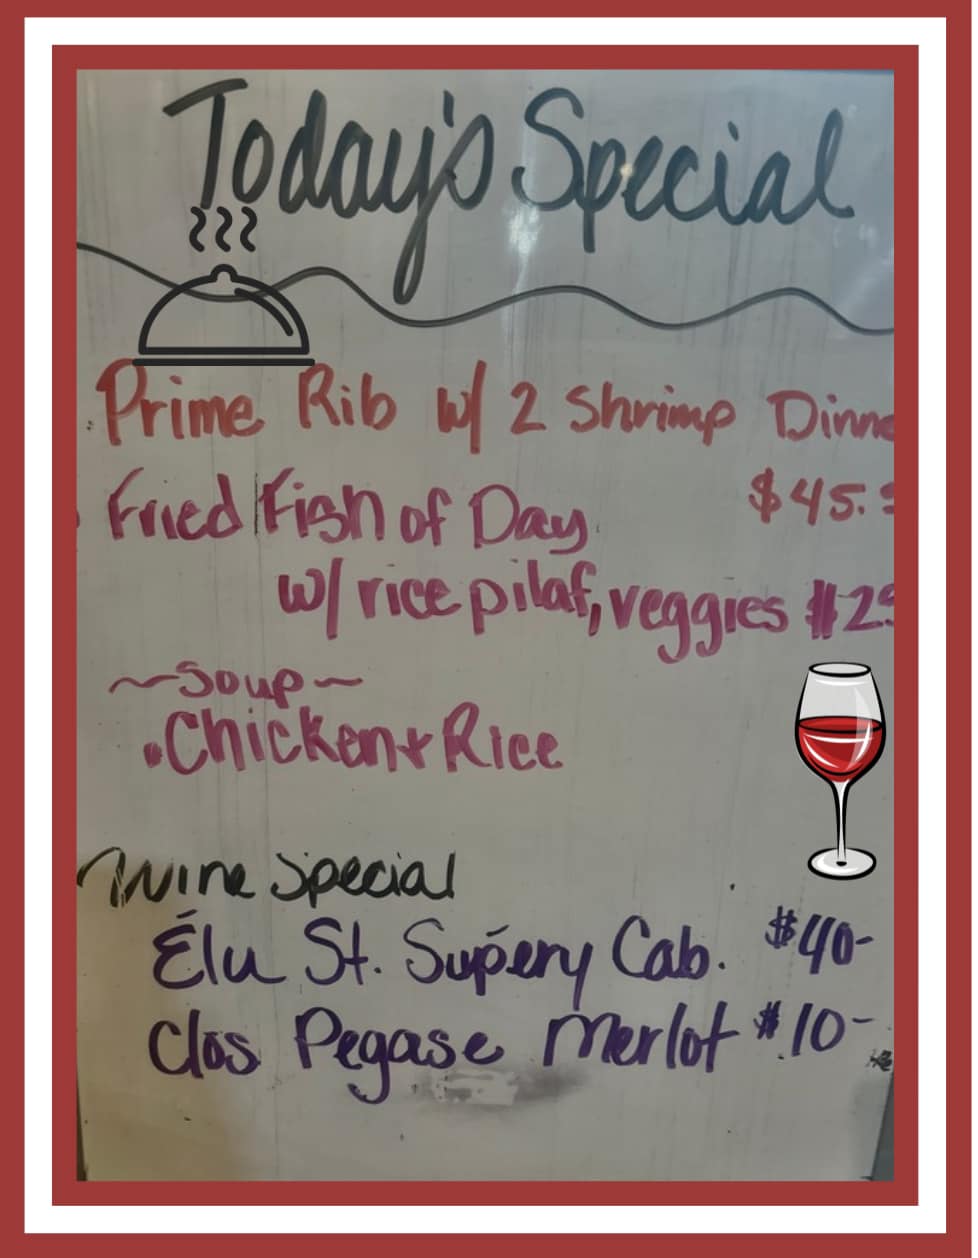 Today's Special
Prime Rib w/ 2 Shrimp Dinne
$45.
Fried Fish of Day
w/ rice pilaf, veggies $2
~Soup~
• Chicken + Rice
Wine Special
Élu St. Supéry Cab. $40-
Clos Pegase Merlot $10-